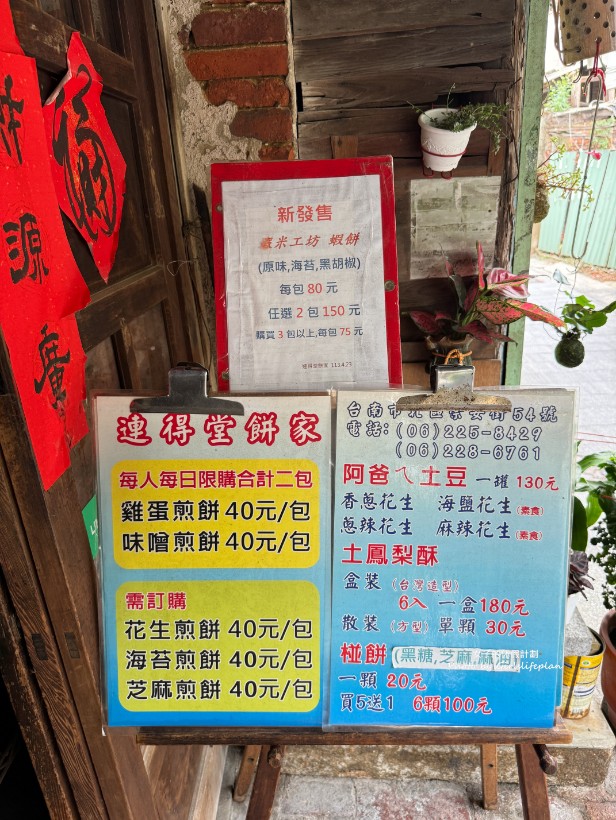 新發售
蝦餅
(原味,海苔,黑胡椒)
每包 80 元
任選 2 包 150 元
購買 3 包以上,每包 75 元
連得堂餅家
每人每日限購合計二包
雞蛋煎餅 40元/包
味噌煎餅 40元/包
需訂購
花生煎餅 40元/包
海苔煎餅 40元/包
芝麻煎餅 40元/包
台南市北區崇安街54號
電話:(06)225-8429
(06)228-6761
阿爸ㄟ土豆 一罐 130元
香蔥花生 海鹽花生(素食)
蔥辣花生 麻辣花生(素食)
土鳳梨酥
盒裝 (台灣造型)
6入 一盒180元
散裝 (方型) 單顆 30元
椪餅 (黑糖,芝麻,麻油)
一顆 20元
買5送1 6顆100元
源
廣